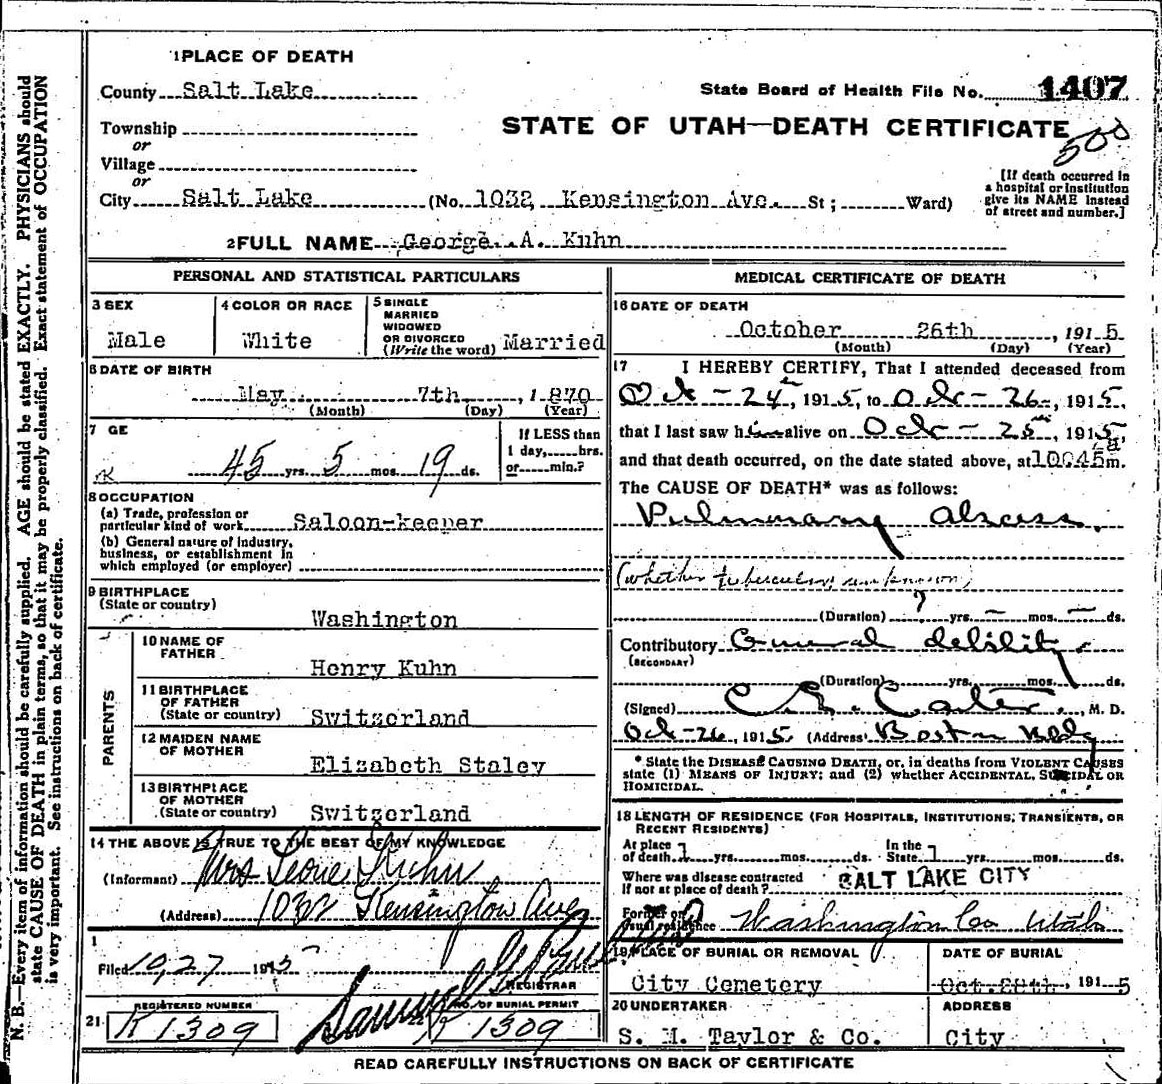 1 PLACE OF DEATH
County Salt Lake
State Board of Health File No. 1407
Township
or
STATE OF UTAH—DEATH CERTIFICATE
500
Village
or
City Salt Lake (No. 1032 Kensington Ave. St; Ward)
[If death occurred in a hospital or institution give its NAME instead of street and number.]
2 FULL NAME George A. Kuhn
PERSONAL AND STATISTICAL PARTICULARS
3 SEX
Male
4 COLOR OR RACE
White
5 SINGLE
MARRIED
WIDOWED
OR DIVORCED
(Write the word) Married
6 DATE OF BIRTH
May 7th, 1870
(Month) (Day) (Year)
7 GE
45 yrs. 5 mos. 19 ds.
If LESS than
1 day,.....hrs.
or.....min.?
8 OCCUPATION
(a) Trade, profession or
particular kind of work Saloon-keeper
(b) General nature of industry,
business, or establishment in
which employed (or employer)
9 BIRTHPLACE
(State or country)
Washington
PARENTS
10 NAME OF
FATHER
Henry Kuhn
11 BIRTHPLACE
OF FATHER
(State or country) Switzerland
12 MAIDEN NAME
OF MOTHER
Elizabeth Staley
13 BIRTHPLACE
OF MOTHER
(State or country) Switzerland
14 THE ABOVE IS TRUE TO THE BEST OF MY KNOWLEDGE
(Informant) Mrs Leone Kuhn
(Address) 1032 Kensington Ave
1
Filed 10, 27 1915
REGISTRAR
REGISTERED NUMBER
21 K 1309
NO. OF BURIAL PERMIT
1309
MEDICAL CERTIFICATE OF DEATH
16 DATE OF DEATH
October 26th, 1915
(Month) (Day) (Year)
17 I HEREBY CERTIFY, That I attended deceased from
Oct - 24, 1915, to Oct - 26, 1915,
that I last saw him alive on Oct - 25, 1915,
and that death occurred, on the date stated above, at 10:45 a m.
The CAUSE OF DEATH* was as follows:
Pulmonary abscess.
(whether tuberculous unknown)
(Duration) ? yrs. — mos. — ds.
Contributory General debility
(SECONDARY)
(Duration) yrs. mos. ds.
(Signed) , M. D.
Oct-26, 1915. (Address) Boston Bldg
* State the DISEASE CAUSING DEATH, or, in deaths from VIOLENT CAUSES
state (1) MEANS OF INJURY; and (2) whether ACCIDENTAL, SUICIDAL OR
HOMICIDAL.
18 LENGTH OF RESIDENCE (FOR HOSPITALS, INSTITUTIONS, TRANSIENTS, OR
RECENT RESIDENTS)
At place
of death 1 yrs. mos. ds.
In the
State yrs. mos. ds.
Where was disease contracted
if not at place of death? SALT LAKE CITY
Former or
usual residence Washington Co Utah
19 PLACE OF BURIAL OR REMOVAL
City Cemetery
DATE OF BURIAL
Oct. 28th, 1915
20 UNDERTAKER
S. M. Taylor & Co.
ADDRESS
City
READ CAREFULLY INSTRUCTIONS ON BACK OF CERTIFICATE
N. B.—Every item of information should be carefully supplied. AGE should be stated EXACTLY. PHYSICIANS should
state CAUSE OF DEATH in plain terms, so that it may be properly classified. Exact statement of OCCUPATION
is very important. See instructions on back of certificate.